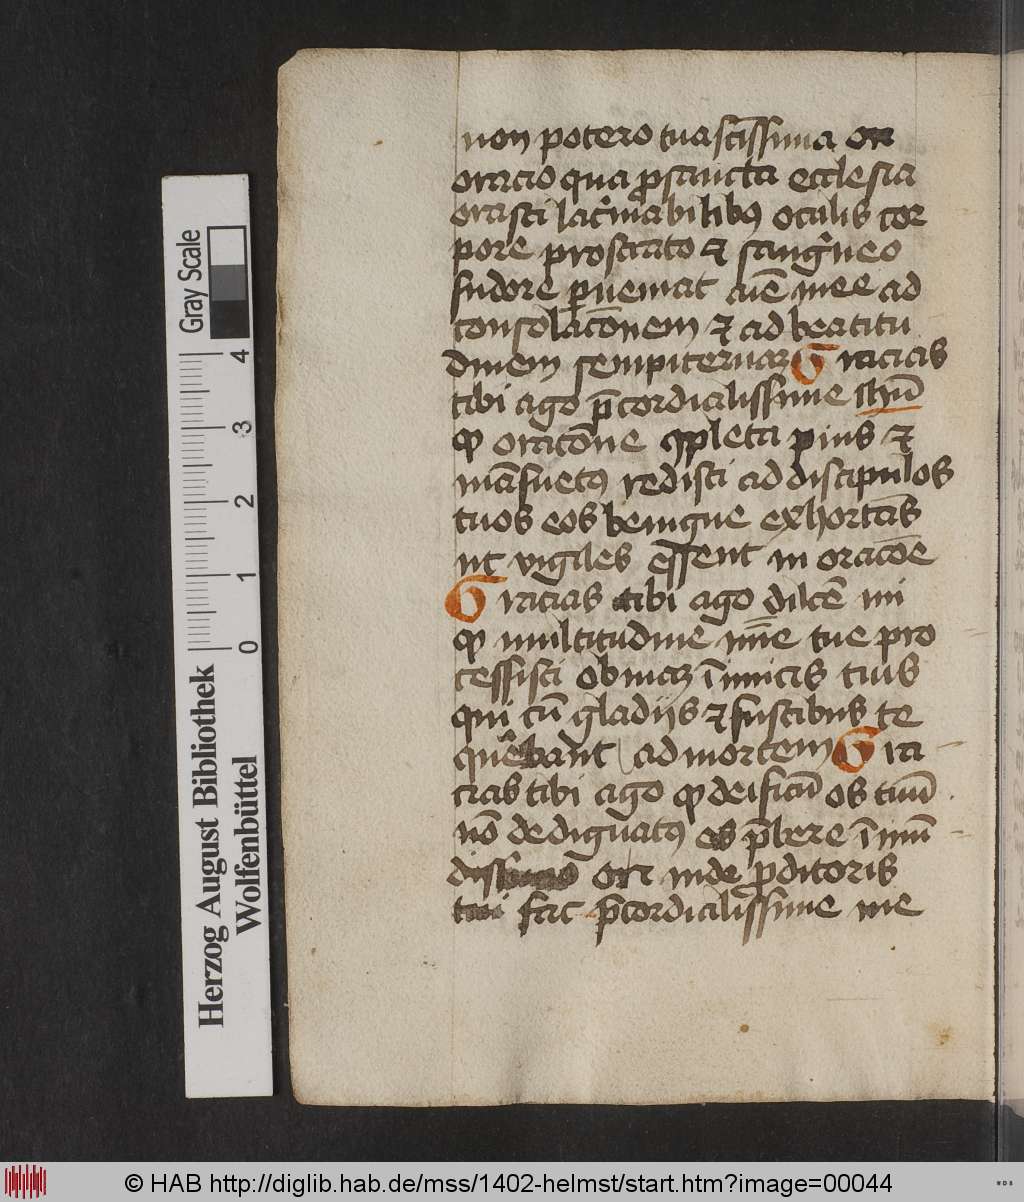 non potero tua sctīssima
oracio qua p sancta ecclesia
orasti lacrimabilibꝯ oculis cor
pore prostrato ⁊ sangͥneo
sudore ꝑueniat aīe mee ad
consolacōnem ⁊ ad beatitu
dinem sempiternaꝫ Gracias
tibi ago p̄cordialissime ihū
qꝫ oracōne ꝯpleta pius ⁊
māsuetꝯ redisti ad discipulos
tuos eos benigne exhortās
ut vigiles essent in oracōe
Gracias tibi ago dilcē mi
qꝫ multitudine tue pro
cessisti obuiaꝫ īimicis tuis
qui cū gladijs ⁊ fustibus te
quērebant ad mortem Gra
cias tibi ago qꝫ deificū os tuū
nō dedignatꝯ es p̄bere
ori inde ꝓditoris
tui fac p̄cordialissime me
Gray Scale
0 1 2 3 4
Herzog August Bibliothek
Wolfenbüttel
© HAB http://diglib.hab.de/mss/1402-helmst/start.htm?image=00044